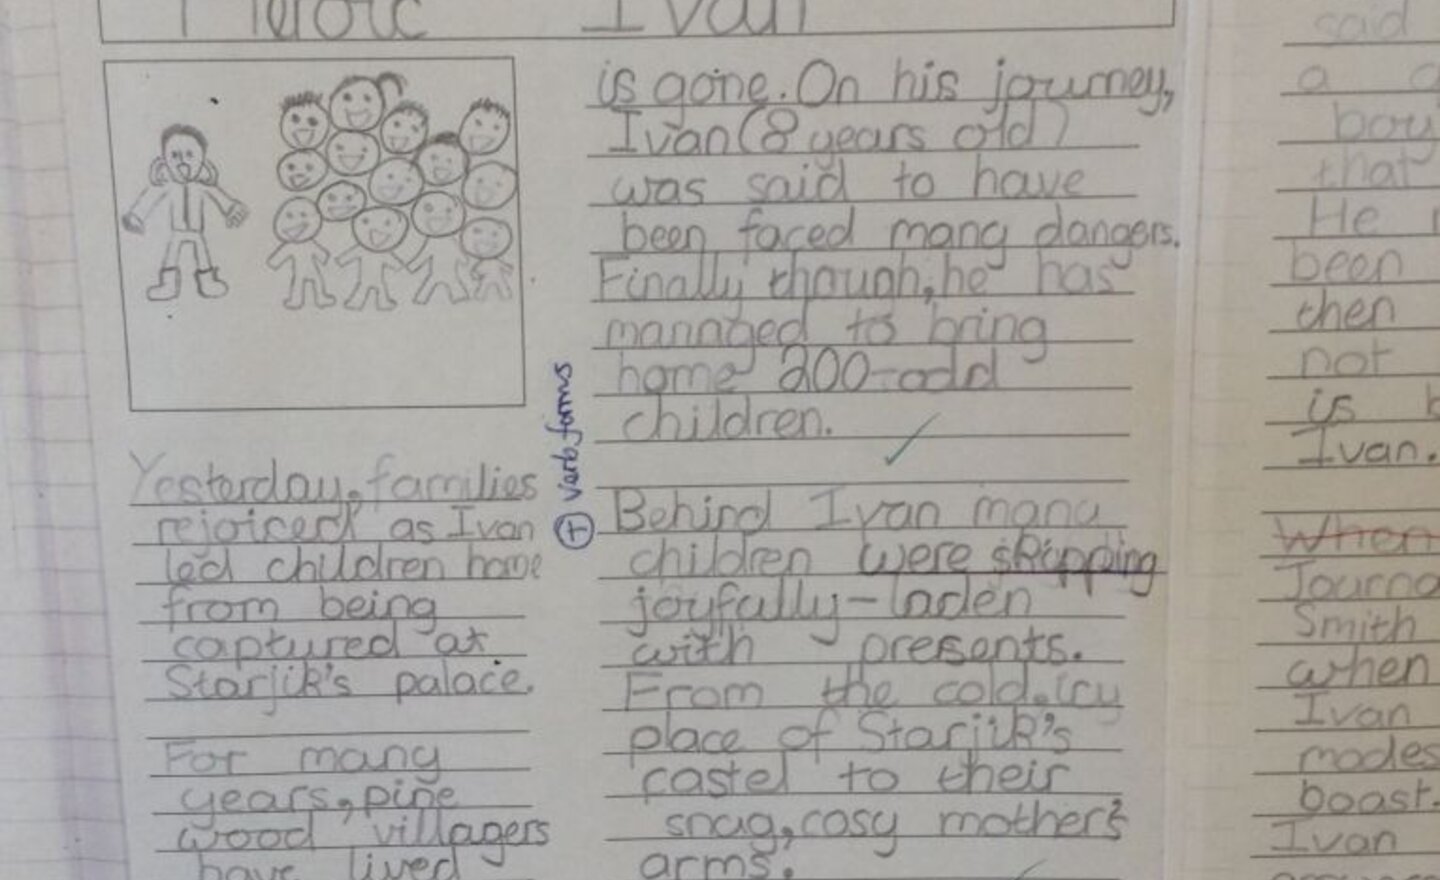 Heroic Ivan
Yesterday, families
rejoiced as Ivan
led children home
from being
captured at
Starjik's palace.
For many
years, pine
wood villagers
have lived
is gone. On his journey,
Ivan (8 years old)
was said to have
been faced many dangers.
Finally though, he has
managed to bring
home 200-odd
children.
+ verb forms
Behind Ivan many
children were skipping
joyfully-laden
with presents.
From the cold, icy
place of Starjik's
castel to their
snug, cosy mother's
arms.
said
a
boy
that
He
been
then
not
is
Ivan.
When
Journa
Smith
when
Ivan
modes
boast.
Ivan